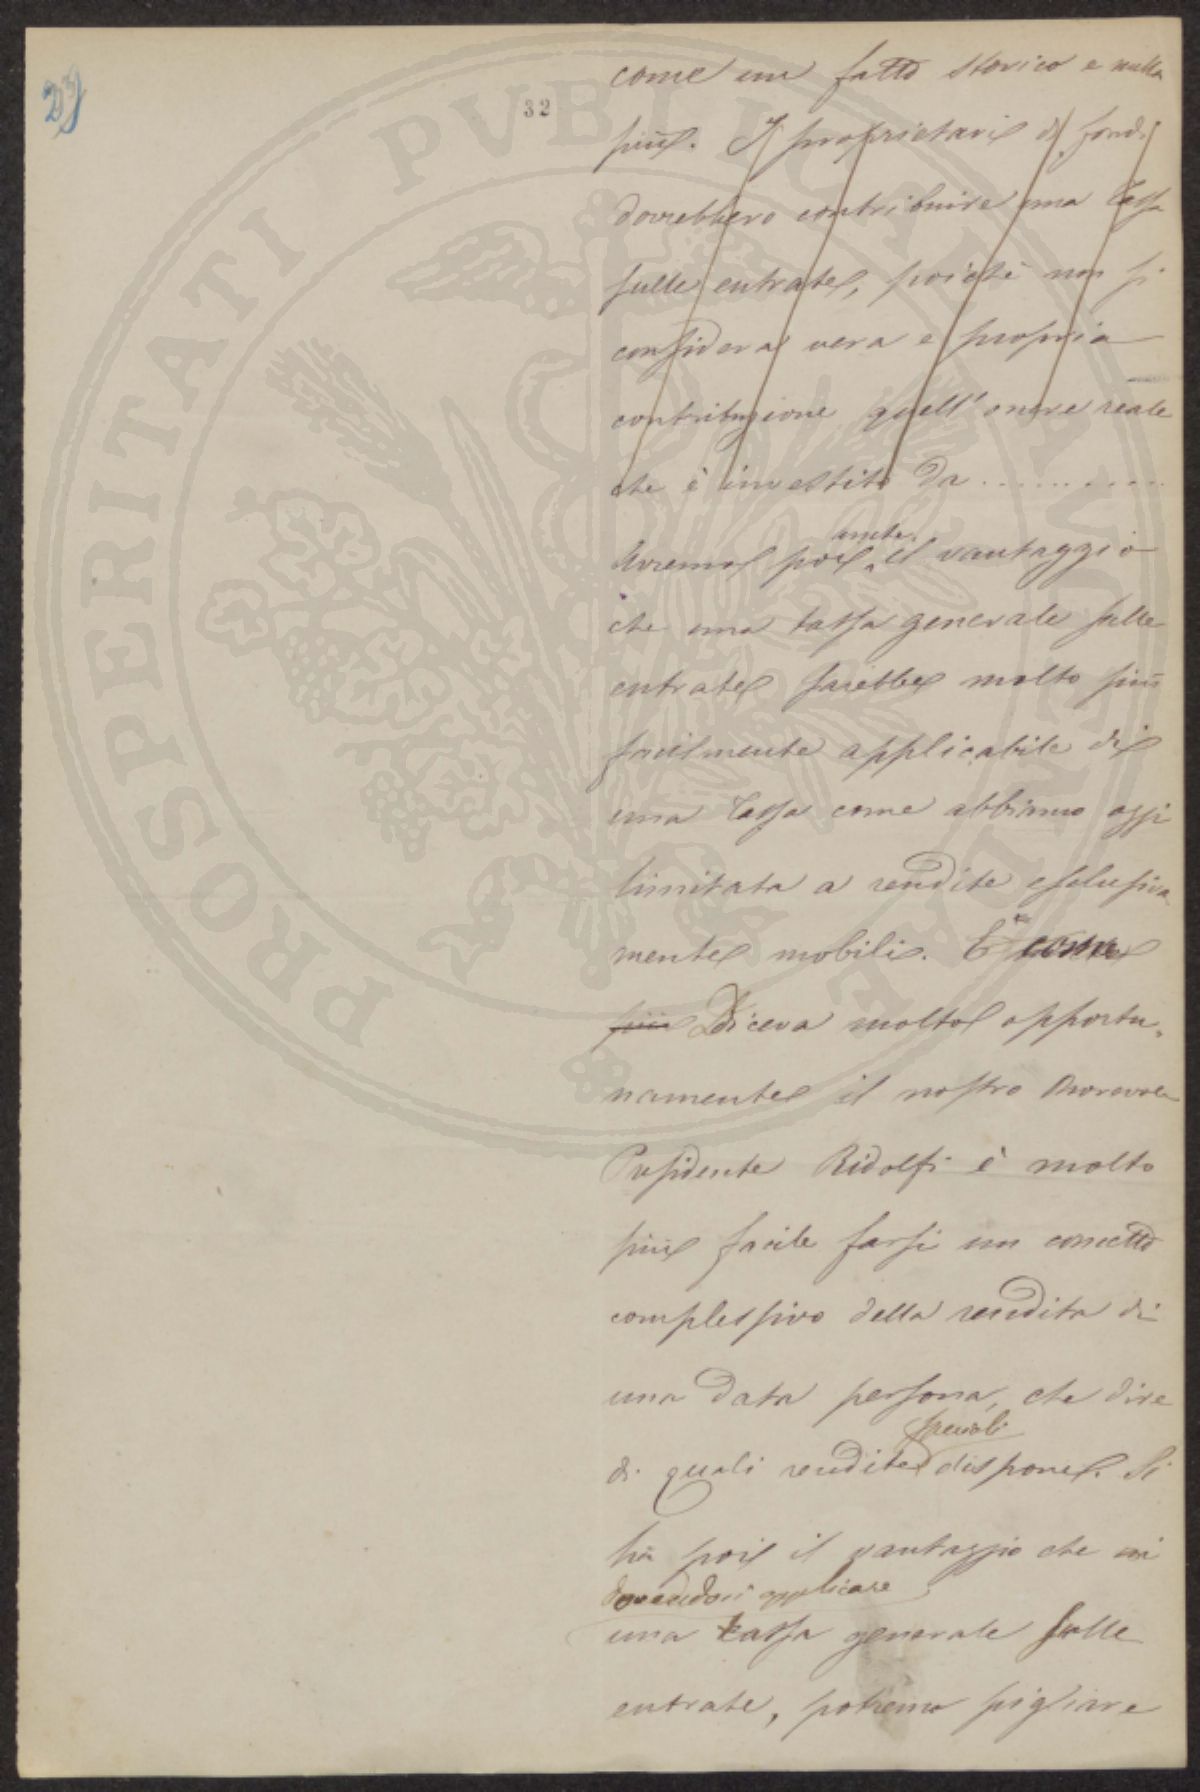 29
32
come un fatto storico e nulla
più. I proprietari di fondi
dovrebbero contribuire una tassa
sulle entrate, poichè non si
considera vera e propria
contribuzione quell'onere reale
che è investito da ..........
anche
Avremo poi il vantaggio
che una tassa generale sulle
entrate sarebbe molto più
facilmente applicabile di
una tassa come abbiamo oggi
limitata a rendite esclusiva-
mente mobili. E come
più Diceva molto opportu-
namente il nostro Onorevole
Presidente Ridolfi è molto
più facile farsi un concetto
complessivo della rendita di
una data persona, che dire
speciali
di quali rendite dispone. Si
ha poi il vantaggio che
dovendosi applicare
una tassa generale sulle
entrate, potremo pigliare
PROSPERITATI PVBLICAE AVGENDAE